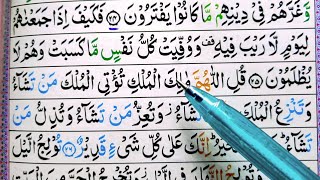 وَّغَرَّهُمۡ فِيۡ دِيۡنِهِمۡ مَّا كَانُوۡا يَفۡتَرُوۡنَ ﴿۲۴﴾ فَكَيۡفَ اِذَا جَمَعۡنٰهُمۡ
لِيَوۡمٍ لَّا رَيۡبَ فِيۡهِ وَوُفِّيَتۡ كُلُّ نَفۡسٍ مَّا كَسَبَتۡ وَهُمۡ لَا
يُظۡلَمُوۡنَ ﴿۲۵﴾ قُلِ اللّٰهُمَّ مٰلِكَ الۡمُلۡكِ تُؤۡتِي الۡمُلۡكَ مَنۡ تَشَآءُ
وَتَنۡزِعُ الۡمُلۡكَ تَشَآءُ وَتُعِزُّ مَنۡ تَشَآءُ وَتُذِلُّ مَنۡ
تَشَآءُ اِنَّكَ عَلٰى كُلِّ شَيۡءٍ قَدِيۡرٌ ﴿۲۶﴾ تُوۡلِجُ الَّيۡلَ